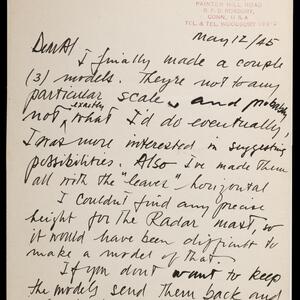 PAINTER HILL ROAD
R. F. D. ROXBURY
CONN., U S A
TEL. & TEL. WOODBURY
May 12/45
Dear Al
I finally made a couple
(3) models. Theyre not to any
particular scale, and probably
not exactly what I'd do eventually,
I was more interested in suggesting
possibilities. Also I've made them
all with the "leaves" horizontal
I couldn't find any precise
height for the Radar mast, so
it would have been difficult to
make a model of that.
If you don't want to keep
the models send them back and